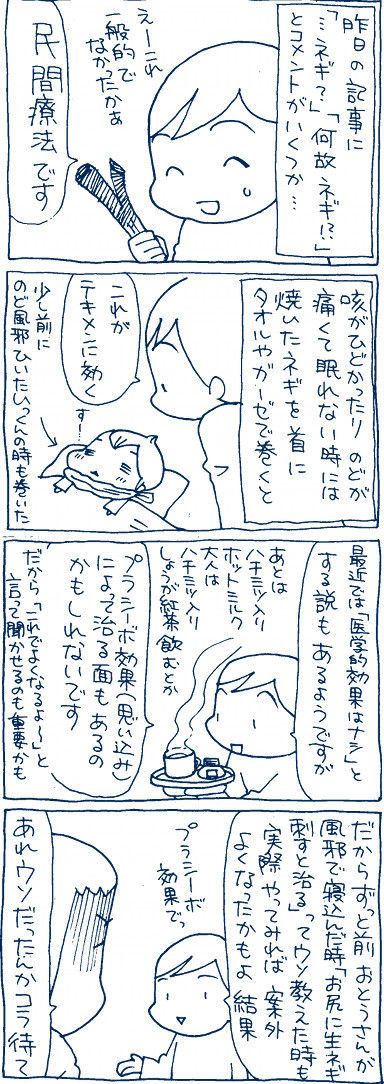 昨日の記事に
「ミネギ?」「何故ネギ!?」
とコメントがいくつか…
えーこれ
一般的で
なかったかぁ
民間療法です
咳がひどかったり のどが
痛くて眠れない時には
焼いたネギを首に
タオルやガーゼで巻くと
これが
テキメンに効く
すー
少し前に
のど風邪ひいたひっくんの時も巻いた
最近では「医学的効果はナシ」と
する説もあるようですが
あとは
ハチミツ入り
ホットミルク
大人は
ハチミツ入り
しょうが紅茶飲むとか
プラシーボ効果(思い込み)
によって治る面もあるの
かもしれないです
だから「これでよくなるよ～」と
言って聞かせるのも重要かも
だからずっと前おとうさんが
風邪で寝込んだ時「お尻に生ネギ
刺すと治る」ってウソ教えた時も
実際やってみれば案外
よくなったかもよ 結果
プラシーボ
効果でっ
あれウソだったんかコラ待て